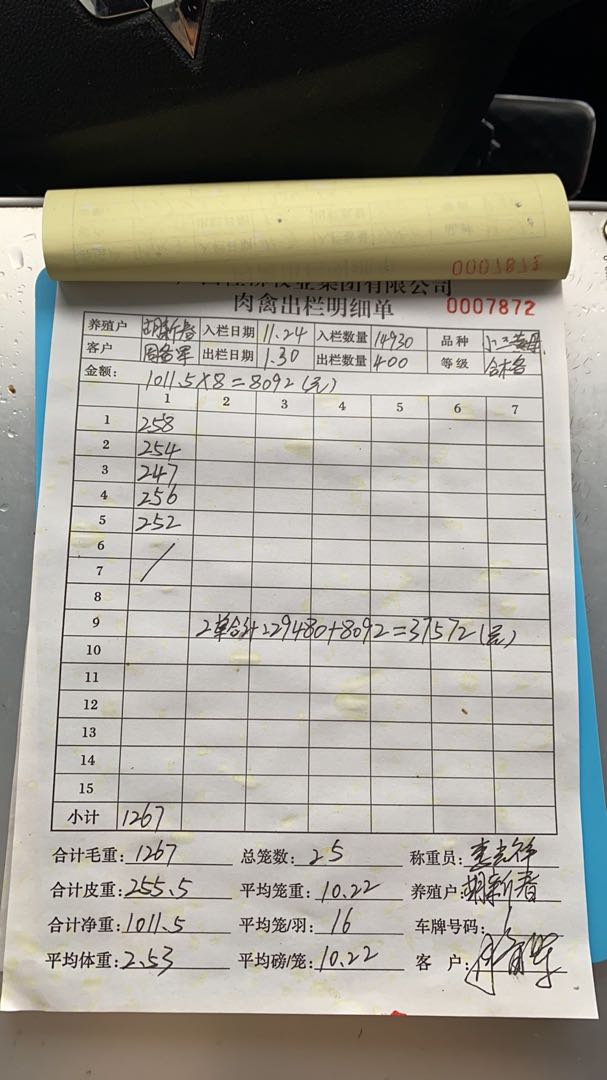 牧业集团有限公司
肉禽出栏明细单 0007872
养殖户 胡新春 入栏日期 11.24 入栏数量 14930 品种
客户 周备军 出栏日期 1.30 出栏数量 400 等级 合格
金额: 1011.5×8=8092(元)
1 2 3 4 5 6 7
1 258
2 254
3 247
4 256
5 252
6
7 /
8
9 2单合计:29480+8092=37572(元)
10
11
12
13
14
15
小计 1267
合计毛重: 1267 总笼数: 25 称重员:
合计皮重: 255.5 平均笼重: 10.22 养殖户: 胡新春
合计净重: 1011.5 平均笼/羽: 16 车牌号码: /
平均体重: 2.53 平均磅/笼: 10.22 客 户: